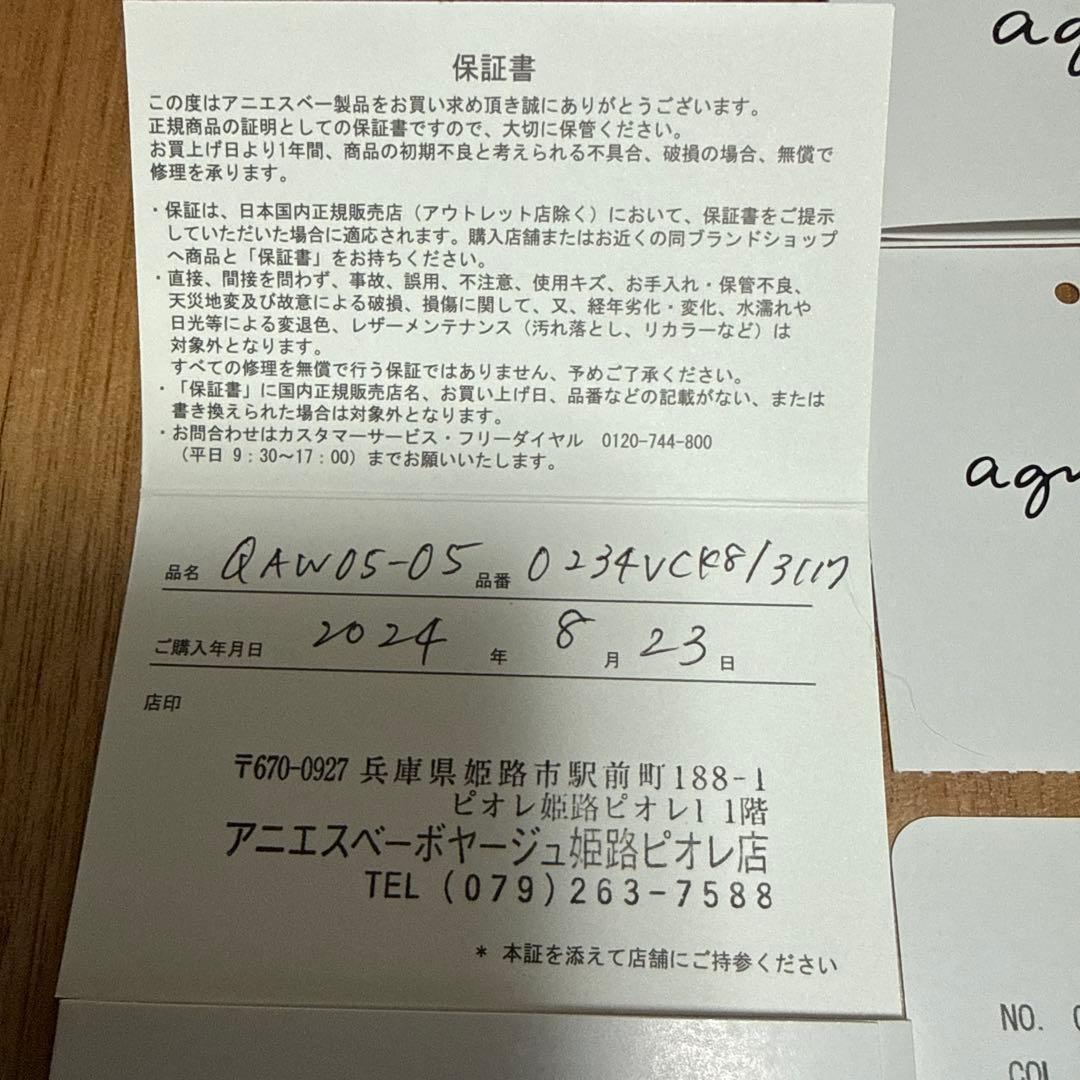 保証書
この度はアニエスベー製品をお買い求め頂き誠にありがとうございます。
正規商品の証明としての保証書ですので、大切に保管ください。
お買上げ日より1年間、商品の初期不良と考えられる不具合、破損の場合、無償で
修理を承ります。
・保証は、日本国内正規販売店（アウトレット店除く）において、保証書をご提示
していただいた場合に適応されます。購入店舗またはお近くの同ブランドショップ
へ商品と「保証書」をお持ちください。
・直接、間接を問わず、事故、誤用、不注意、使用キズ、お手入れ・保管不良、
天災地変及び故意による破損、損傷に関して、又、経年劣化・変化、水濡れや
日光等による変退色、レザーメンテナンス（汚れ落とし、リカラーなど）は
対象外となります。
すべての修理を無償で行う保証ではありません、予めご了承ください。
・「保証書」に国内正規販売店名、お買い上げ日、品番などの記載がない、または
書き換えられた場合は対象外となります。
・お問合わせはカスタマーサービス・フリーダイヤル 0120-744-800
（平日 9：30～17：00）までお願いいたします。
品名 QAW05-05 品番 0234VCK8/3117
ご購入年月日 2024 年 8 月 23 日
店印
〒670-0927 兵庫県姫路市駅前町188-1
ピオレ姫路ピオレ1 1階
アニエスベーボヤージュ姫路ピオレ店
TEL (079)263-7588
* 本証を添えて店舗にご持参ください
ag
agn
NO. 0
COL